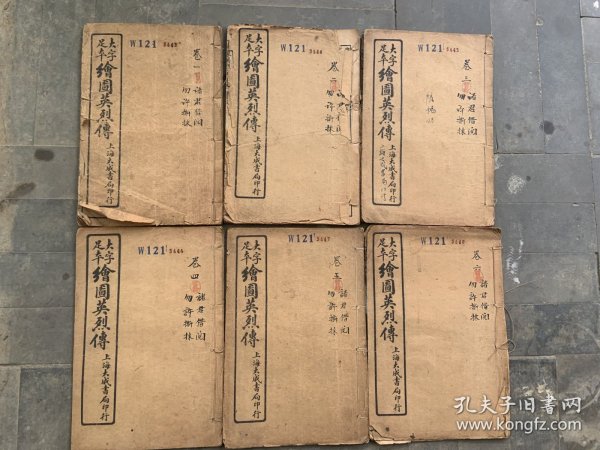 大字
足本
繪圖英烈傳
上海大成書局印行
W121
卷一
諸君借閱
勿許撕抹
大字
足本
繪圖英烈傳
上海大成書局印行
W121
卷二
勿許撕抹
大字
足本
繪圖英烈傳
上海大成書局印行
W121
卷三
諸君借閱
勿許撕抹
大字
足本
繪圖英烈傳
上海大成書局印行
W121
卷四
諸君借閱
勿許撕抹
大字
足本
繪圖英烈傳
上海大成書局印行
W121
卷五
諸君借閱
勿許撕抹
大字
足本
繪圖英烈傳
上海大成書局印行
W121
卷六
諸君借閱
勿許撕抹
孔夫子旧书网
kongfz.com